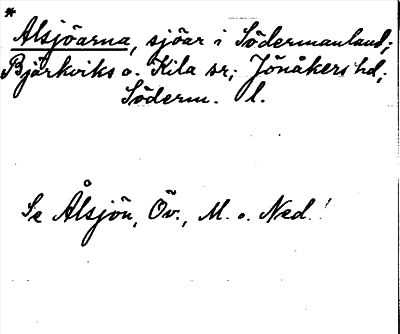 *
Alsjöarna, sjöar i Södermanland;
Björkviks o. Kila sr; Jönåkers hd;
Söderm. l.
Se Ålsjön, Öv., M. o. Ned.!